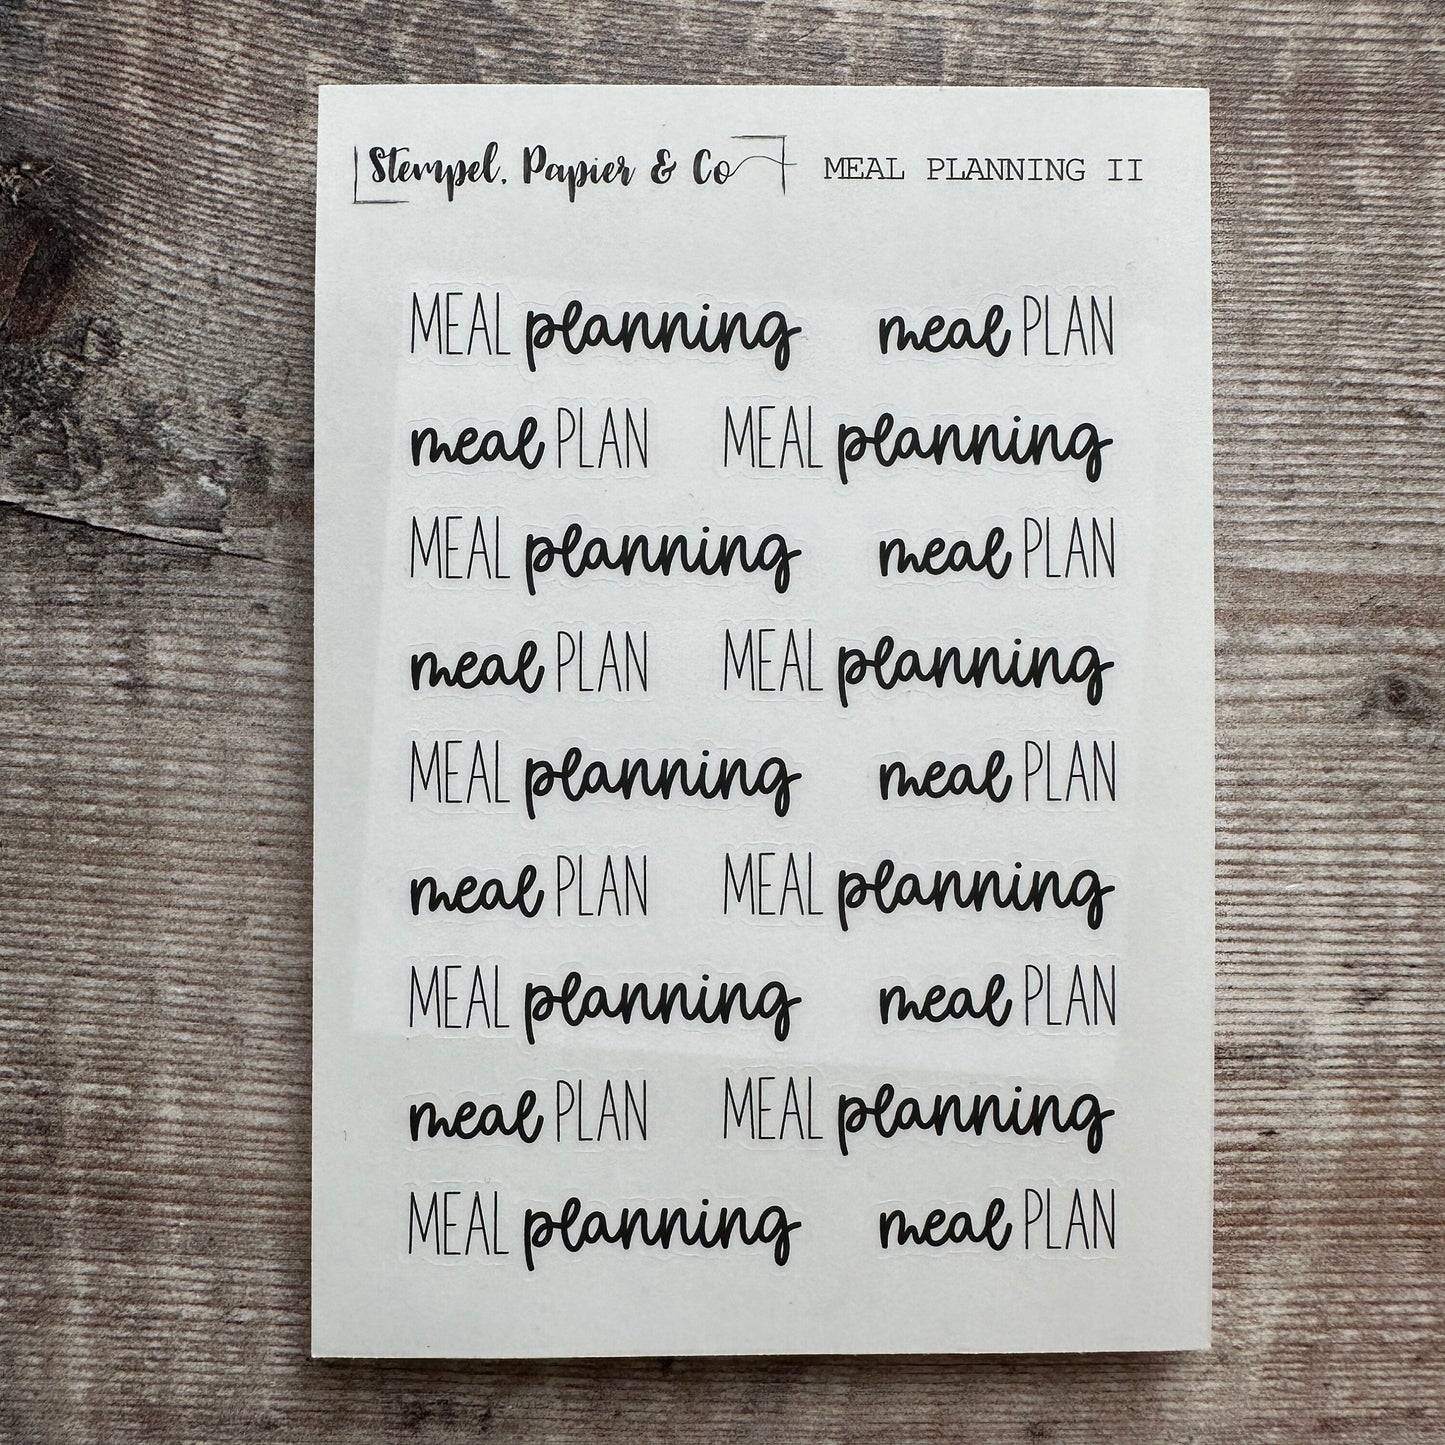 Stempel, Papier & Co MEAL PLANNING II
MEAL planning meal PLAN
meal PLAN MEAL planning
MEAL planning meal PLAN
meal PLAN MEAL planning
MEAL planning meal PLAN
meal PLAN MEAL planning
MEAL planning meal PLAN
meal PLAN MEAL planning
MEAL planning meal PLAN